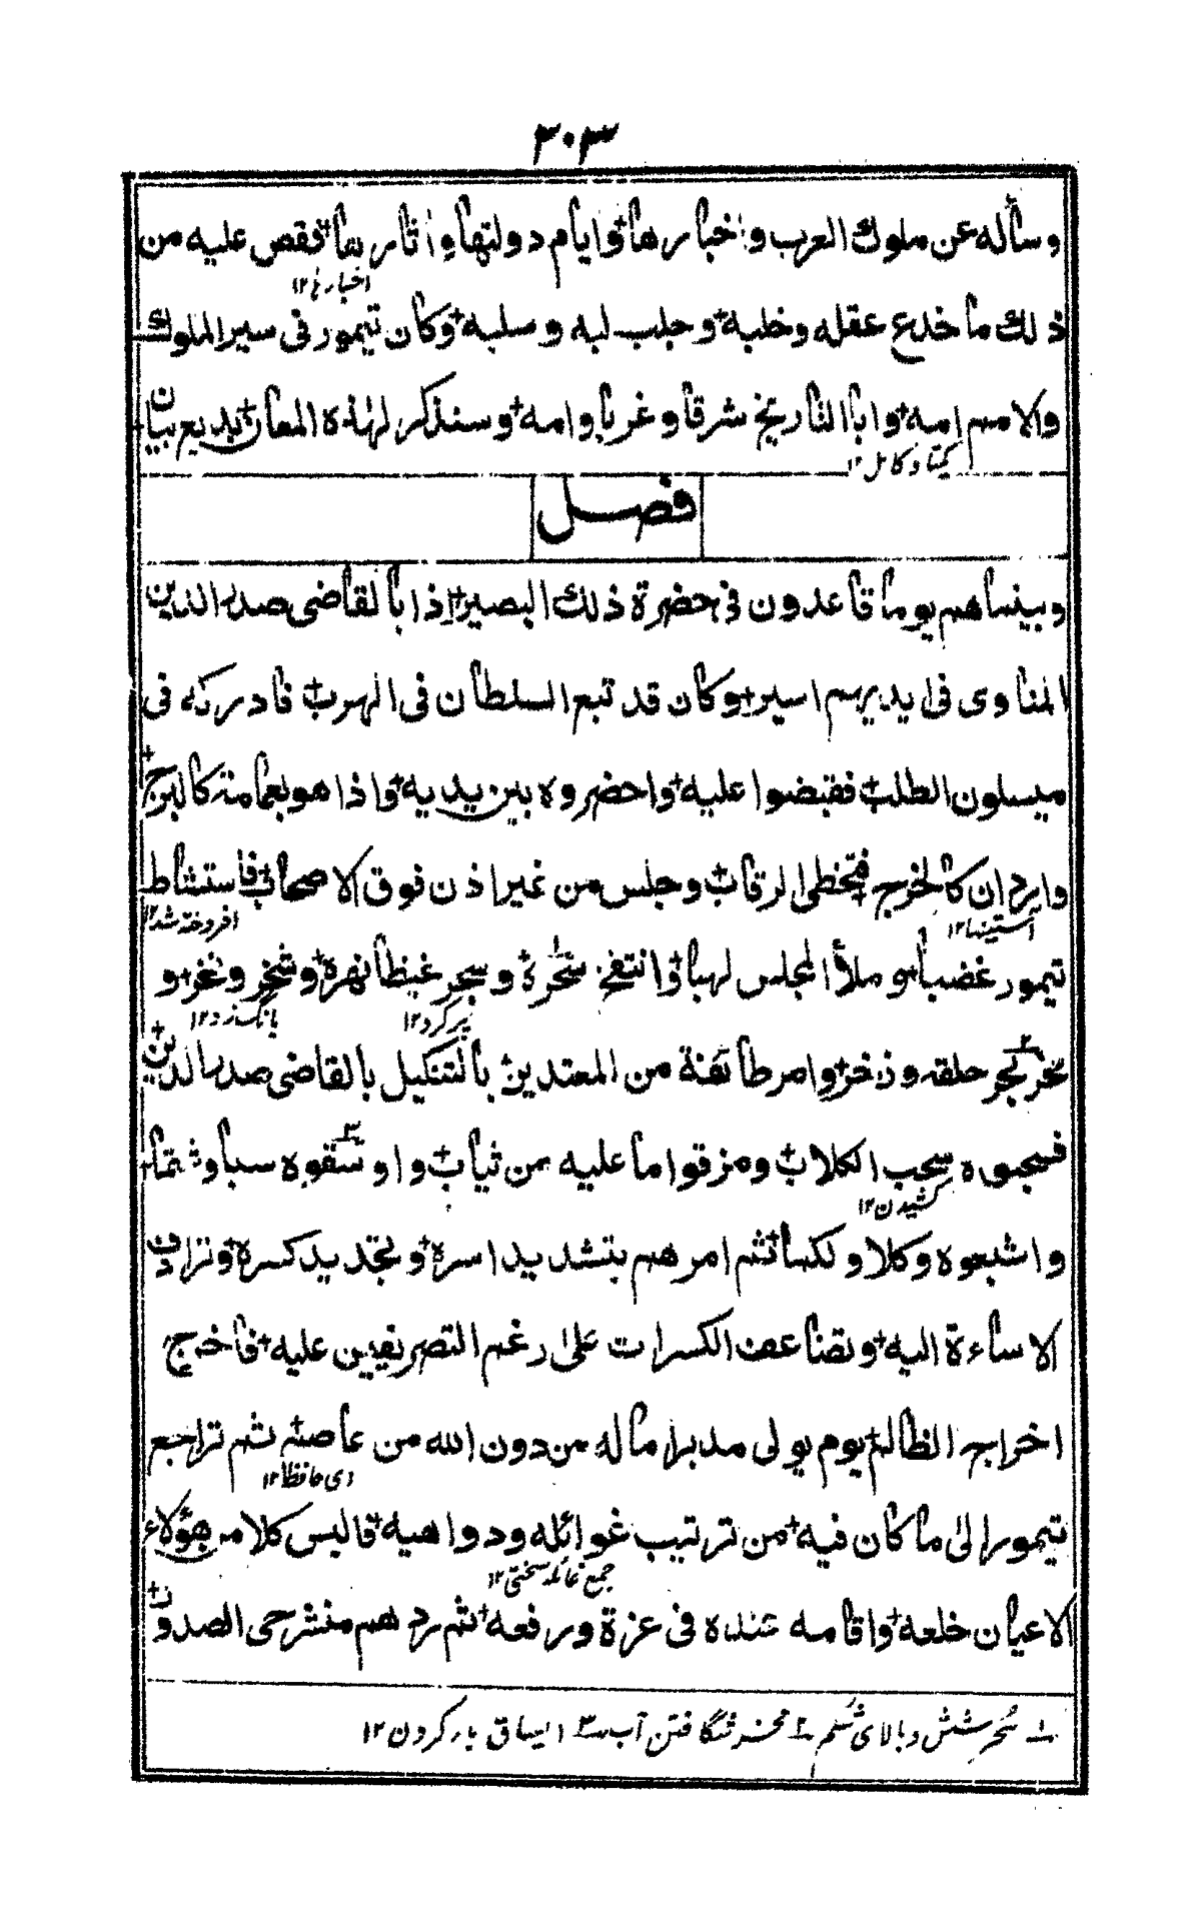 ٣٠٣
وسأله عن ملوك العرب واخبارها+وايام دولتها واٰثارها+فقص عليه من
اخبارها١٢
ذلك ما خدع عقله وخلبه+وجلب لبه وسلبه+وكان تيمور فى سير الملوك
والامم امه+وابا التاريخ شرقا وغربا وامه+وسنذكر لهٰذه المعان+بديع بيان
يكتا وكامل١٢
فصل
وبينما هم يوما قاعدون فى حضرة ذلك البصير+اذا بالقاضى صدر الدين
المناوى فى ايديهم اسير+وكان قد تبع السلطان فى الهرب+فادركه فى
ميسلون الطلب+فقبضوا عليه+واحضروه بين يديه+واذا هو بعمامة كالبرج+
واردان كالخرج+فتخطى الرقاب+وجلس من غير اذن فوق الاصحاب+فاستشاط
آستينها١٢ افروخته شد١٢
تيمور غضبا+وملأ المجلس لهبا+وانتفخ سَحْرُه+وسجر غيظا نهره+وشخر ونخر+و
پر كرد١٢ بانگ زد١٢
مخر بحر حلقه وزخر+وامر طائفة من المعتدين+بالتنكيل بالقاضى صدر الدين+
فسحبوه سحب الكلاب+ومزقوا ما عليه من ثياب+واوسقوه سبا وشتما+
كشيدن١٢
واشبعوه وكلا ولكما+ثم امرهم بتشديد اسره+وتجديد كسره+وترادف
الاساءة اليه+وتضاعف الكسرات علىٰ رغم التصريفيين عليه+فاخرج
اخراج الظالم+يوم يولى مدبرا ماله من دون الله من عاصم+ثم تراجع
اى حافظ١٢
تيمور الىٰ ما كان فيه+من ترتيب غوائله ودواهيه+فالبس كلا من هؤلاء
جمع غائله سختى١٢
الاعيان خلعه+واقامه عنده فى عزة ورفعه+ثم ردهم منشرحى الصدور+
١ سُحر شش وبالاى شكم ٢ مخر شگافتن آب ٣ ايساق بار كردن ١٢